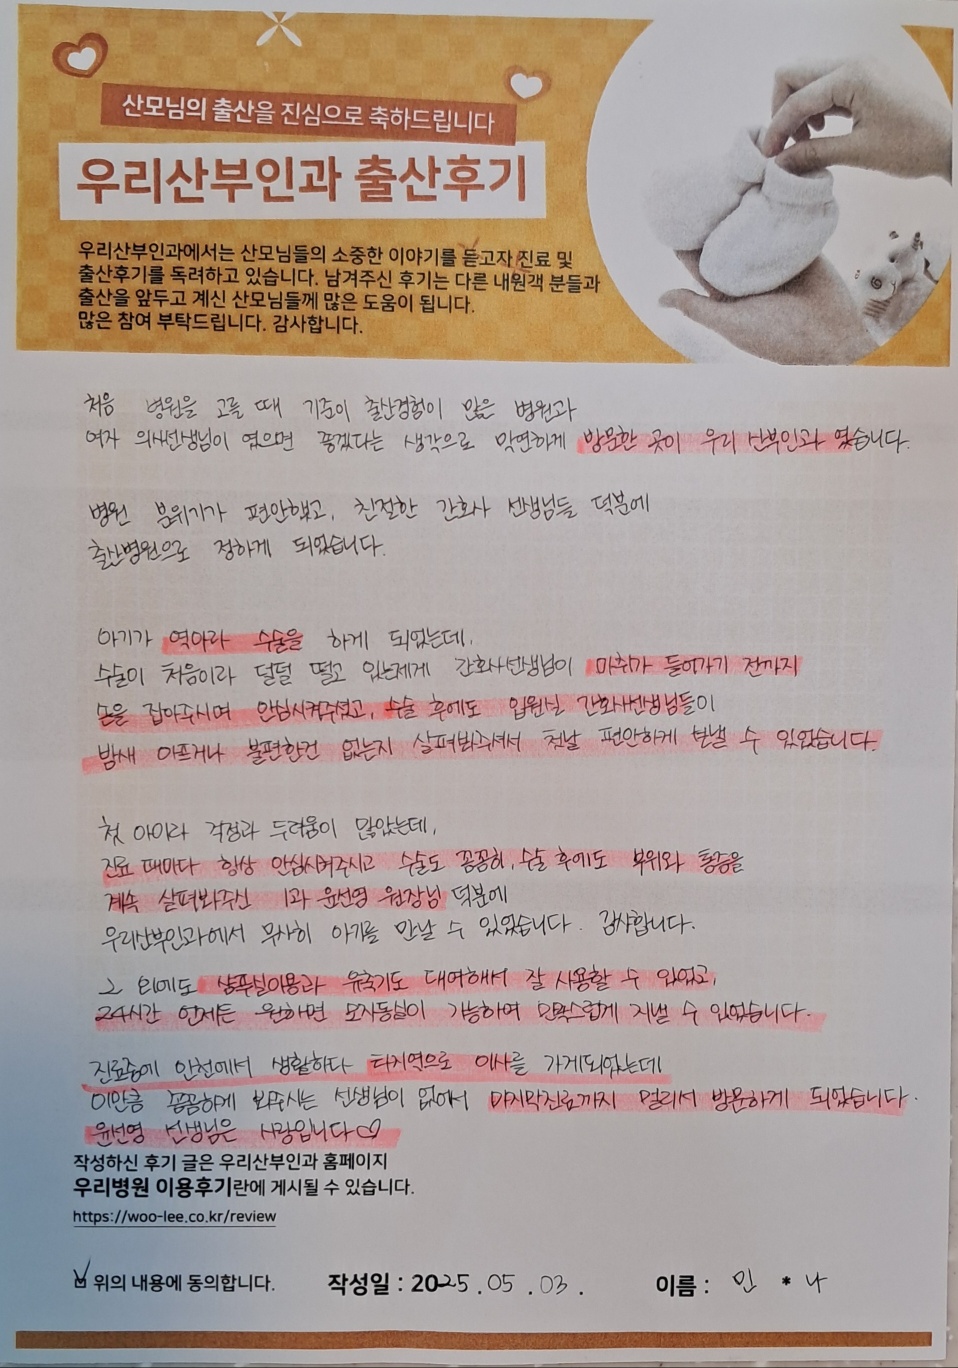 산모님의 출산을 진심으로 축하드립니다
우리산부인과 출산후기
우리산부인과에서는 산모님들의 소중한 이야기를 듣고자 진료 및
출산후기를 독려하고 있습니다. 남겨주신 후기는 다른 내원객 분들과
출산을 앞두고 계신 산모님들께 많은 도움이 됩니다.
많은 참여 부탁드립니다. 감사합니다.
처음 병원을 고를 때 기준이 출산경험이 많은 병원과
여자 의사선생님이 였으면 좋겠다는 생각으로 막연하게 방문한 곳이 우리 산부인과 였습니다.
병원 분위기가 편안했고, 친절한 간호사 선생님들 덕분에
출산병원으로 정하게 되었습니다.
아기가 역아라 수술을 하게 되었는데,
수술이 처음이라 덜덜 떨고 있는제게 간호사선생님이 마취가 들어가기 전까지
손을 잡아주시며 안심시켜주셨고, 수술 후에도 입원실 간호사선생님들이
밤새 아프거나 불편한건 없는지 살펴봐주셔서 첫날 편안하게 보낼 수 있었습니다.
첫 아이라 걱정과 두려움이 많았는데,
진료 때마다 항상 안심시켜주시고 수술도 꼼꼼히, 수술 후에도 부위와 통증을
계속 살펴봐주신 1과 윤선영 원장님 덕분에
우리산부인과에서 무사히 아기를 만날 수 있었습니다. 감사합니다.
그 외에도 샴푸실이용과 유축기도 대여해서 잘 사용할 수 있었고,
24시간 언제든 원하면 모자동실이 가능하여 만족스럽게 지낼 수 있었습니다.
진료중에 인천에서 생활하다 타지역으로 이사를 가게되었는데
이만큼 꼼꼼하게 봐주시는 선생님이 없어서 마지막진료까지 멀리서 방문하게 되었습니다.
윤선영 선생님은 사랑입니다♡
작성하신 후기 글은 우리산부인과 홈페이지
우리병원 이용후기란에 게시될 수 있습니다.
https://woo-lee.co.kr/review
위의 내용에 동의합니다. 작성일 : 2025.05.03. 이름 : 민 * 나